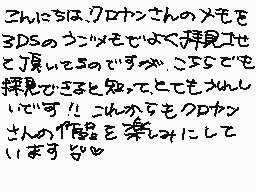 こんにちは、クロヤンさんのメモを
3DSのうごメモでよく拝見させ
て頂いてるのですが、こちらでも
拝見できると知って、とてもうれし
いです!! これからもクロヤン
さんの作品を楽しみにして
います